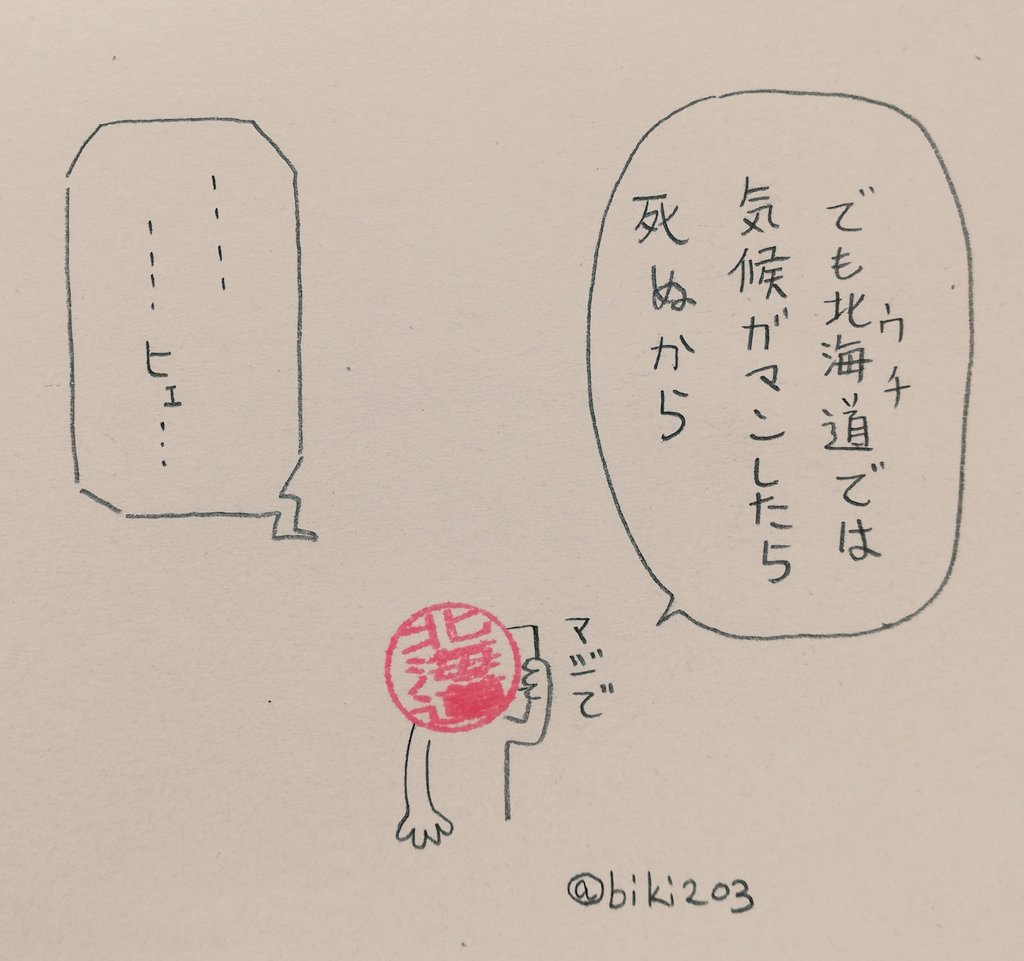 でも北海道では
ウチ
気候ガマンしたら
死ぬから
マジで
北海道
----
----ヒェ...
@biki203